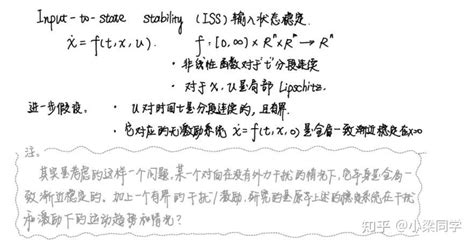 Input-to-state stability (ISS) 输入状态稳定.
ẋ = f(t, x, u). f: [0, ∞) × Rⁿ × Rᵐ → Rⁿ
· 非线性函数对于"t"分段连续
· 对于 x, u 是局部 Lipschitz.
进一步假设。 · u 对时间t是分段连续的, 且有界.
· 它对应的无激励系统 ẋ = f(t, x, 0) 是全局一致渐近稳定在x=0
注。
其实是考虑的这样一个问题, 某一个对向在没有外力干扰的情况下, 它本身是全局一
致渐近稳定的。加上一个有界的干扰/激励, 研究的是原本上述的稳定系统在干扰
和激励下的运动趋势和情况?
知乎 @小梁同学